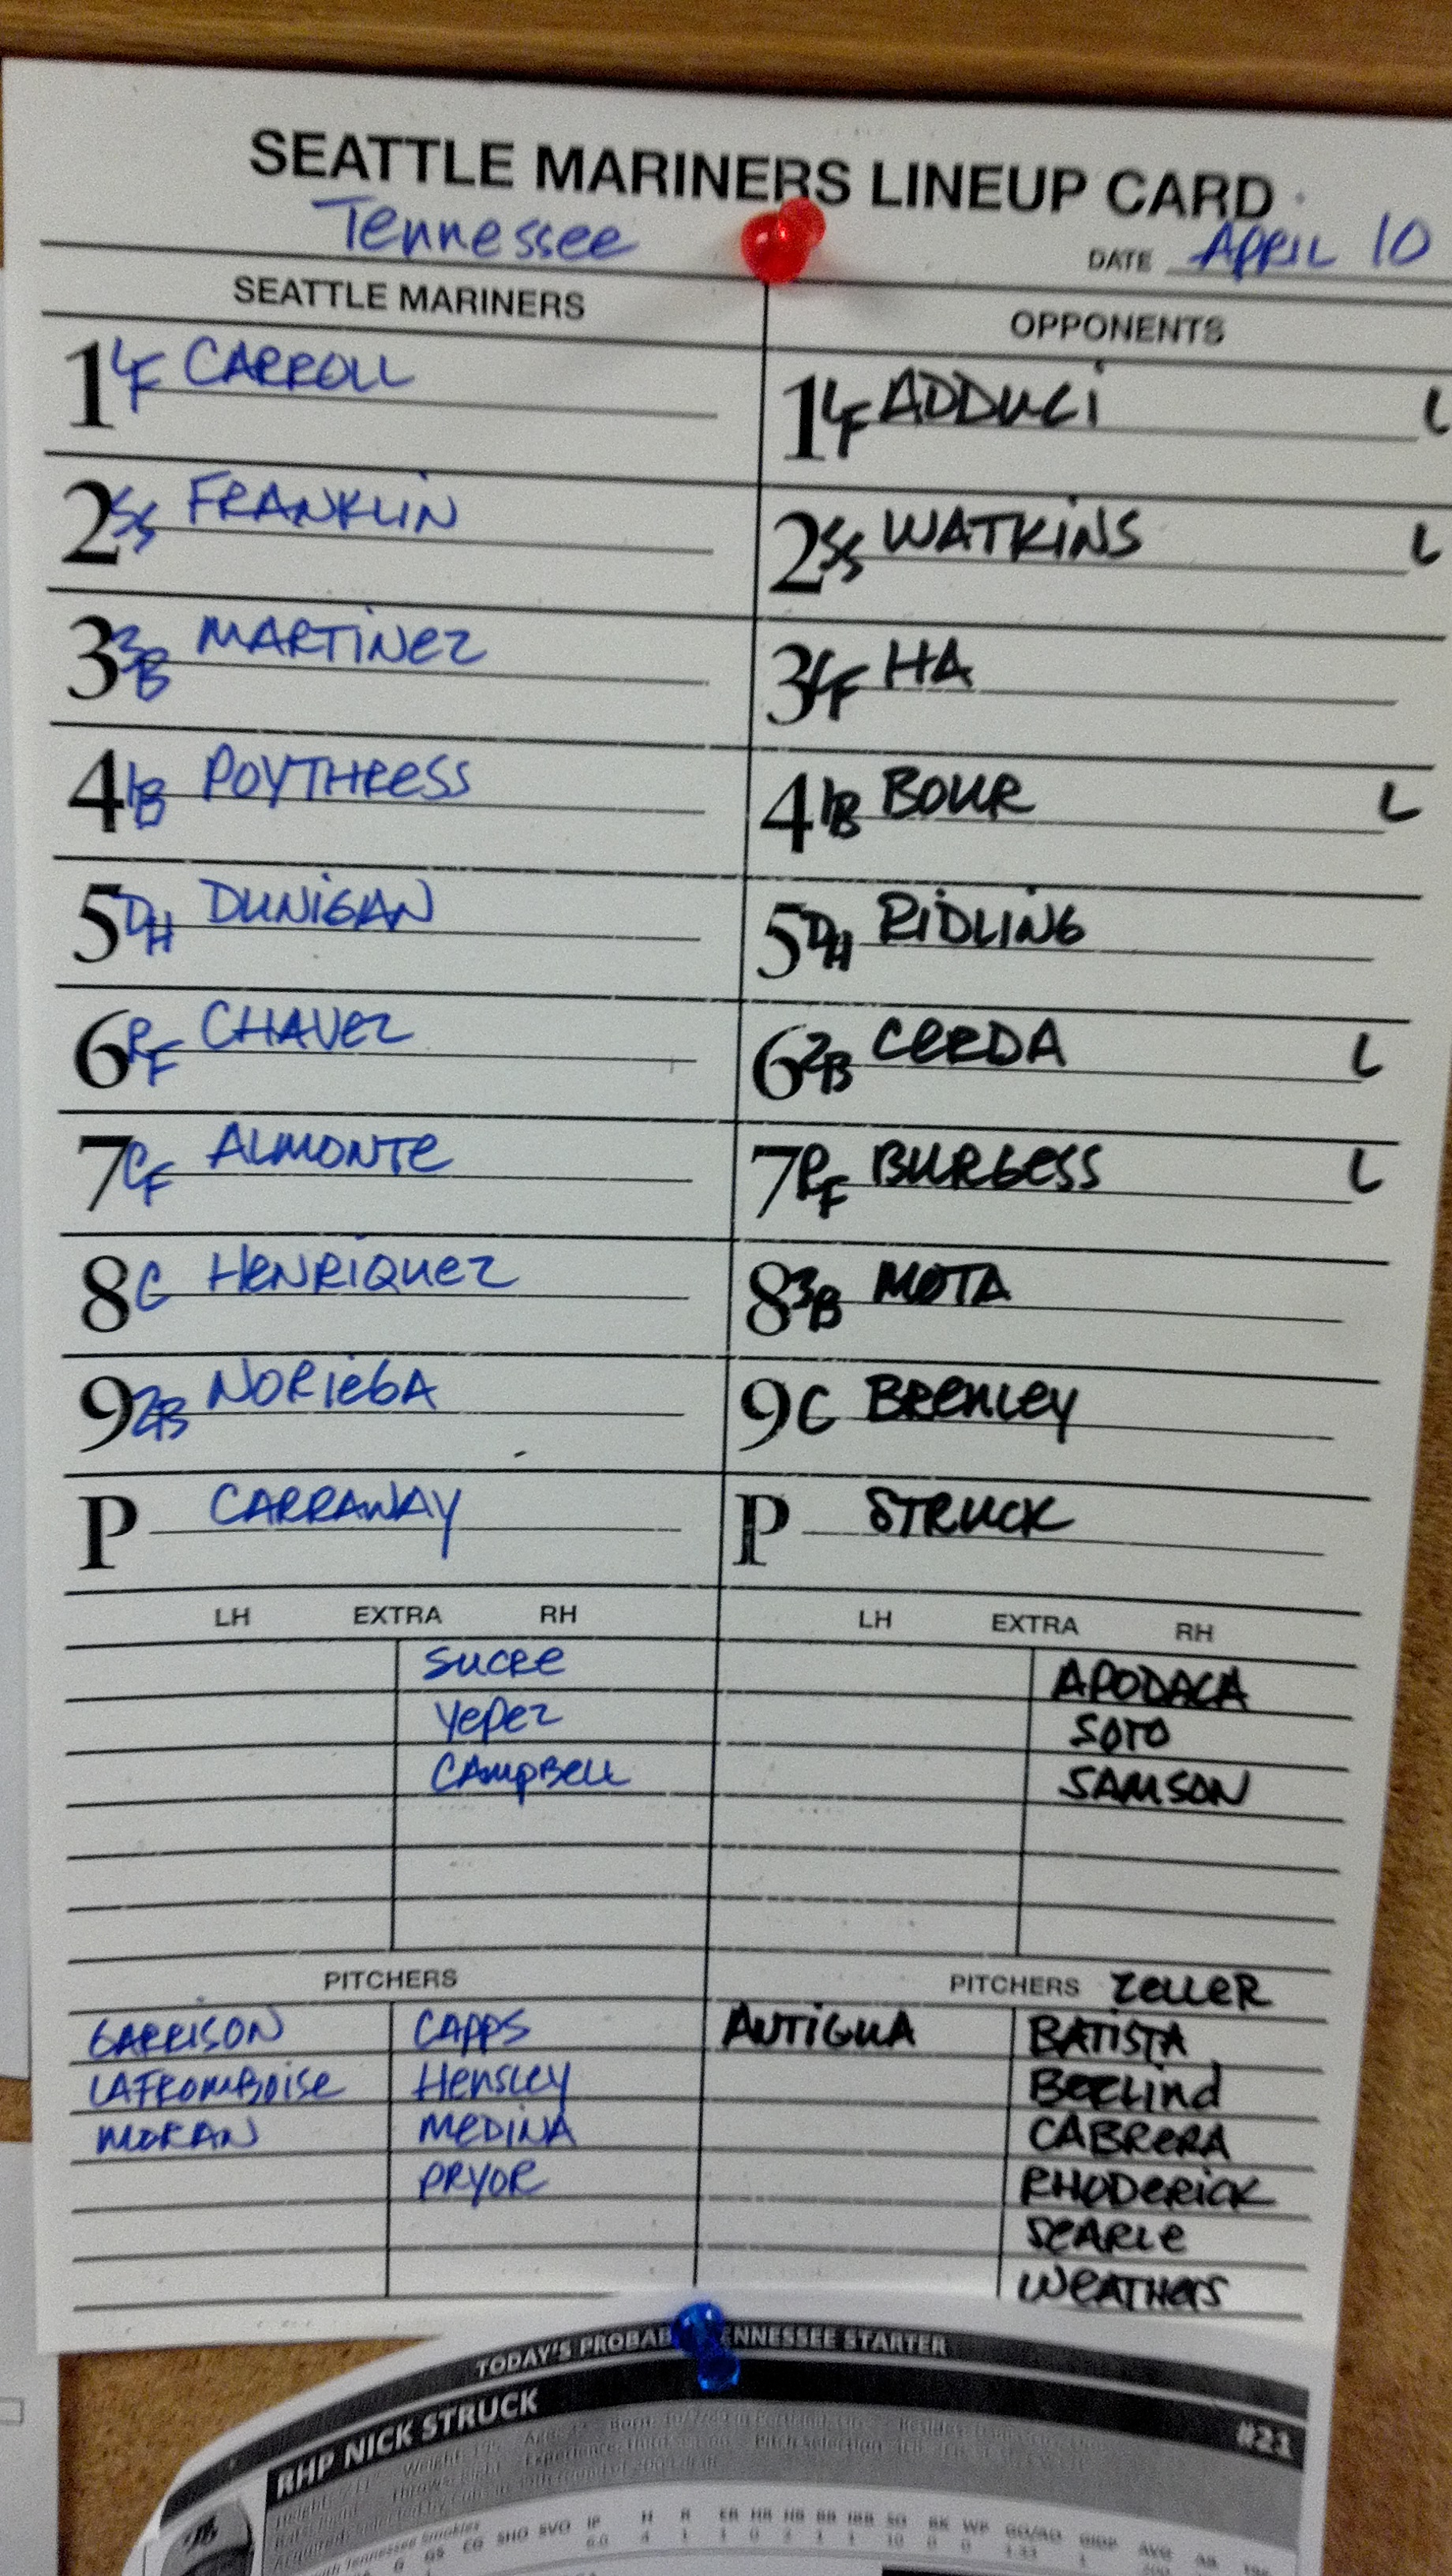 SEATTLE MARINERS LINEUP CARD
Tennessee
DATE APRIL 10
SEATTLE MARINERS
OPPONENTS
1 LF CARROLL
1 LF ADDUCi L
2 SS FRANKLiN
2 SS WATKiNS L
3 3B MARTiNez
3 CF HA
4 1B POYTHRess
4 1B BOUR L
5 DH DUNiGAN
5 DH RiDLiNG
6 RF CHAVez
6 2B CeRDA L
7 CF ALMONTe
7 RF BURGess L
8 C HeNRiQuez
8 3B MOTA
9 2B NORieGA
9 C BReNLey
P CARRAWAY
P STRUCK
LH EXTRA RH
LH EXTRA RH
SUCRe
APODACA
YePez
SOTO
CAMPBeLL
SAMSON
PITCHERS
PITCHERS ZeLLeR
GARRISON CAPPS
ANTiGUA BATiSTA
LAFROMBOiSe HeNSLey
BeeLiNd
MORAN MeDiNA
CABReRA
PRYOR
RHODeRiCK
SeARLe
WeATHeRS
TODAY'S PROBAB ENNESSEE STARTER
RHP NICK STRUCK #21